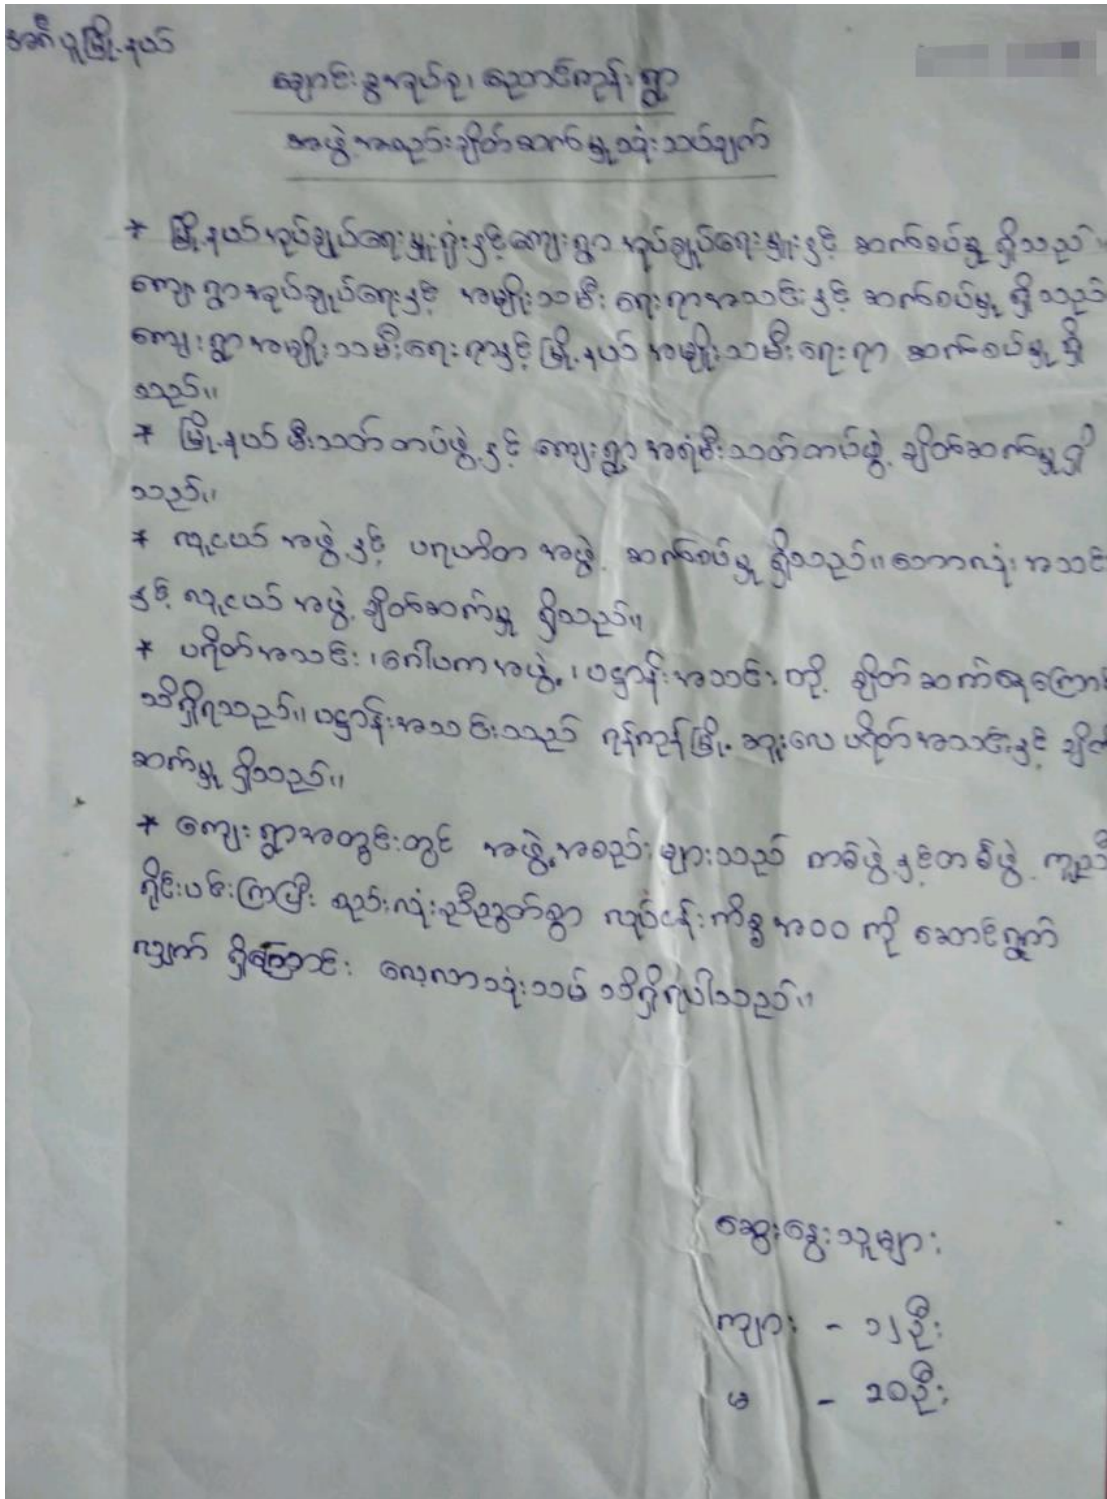 အင်္ဂပူမြို့နယ်
ချောင်းခွအုပ်စု၊ ညောင်ကုန်းရွာ
အဖွဲ့အစည်းချိတ်ဆက်မှုသုံးသပ်ချက်
* မြို့နယ်အုပ်ချုပ်ရေးမှူးရုံးနှင့်ကျေးရွာအုပ်ချုပ်ရေးမှူးနှင့် ဆက်စပ်မှု ရှိသည်။
ကျေးရွာအုပ်ချုပ်ရေးနှင့် အမျိုးသမီးရေးရာအသင်းနှင့် ဆက်စပ်မှု ရှိသည်
ကျေးရွာအမျိုးသမီးရေးရာနှင့် မြို့နယ်အမျိုးသမီးရေးရာ ဆက်စပ်မှု ရှိ
သည်။
* မြို့နယ်မီးသတ်တပ်ဖွဲ့နှင့် ကျေးရွာအရံမီးသတ်တပ်ဖွဲ့ ချိတ်ဆက်မှုရှိ
သည်။
* လူငယ်အဖွဲ့နှင့် ပရဟိတအဖွဲ့ ဆက်စပ်မှု ရှိသည်။ ဘောလုံးအသင်း
နှင့် လူငယ်အဖွဲ့ ချိတ်ဆက်မှု ရှိသည်။
* ပရိတ်အသင်း၊ ဂေါပကအဖွဲ့၊ ပဋ္ဌာန်းအသင်းတို့ ချိတ်ဆက်နေကြောင်း
သိရှိရသည်။ ပဋ္ဌာန်းအသင်းသည် ရန်ကုန်မြို့ ဆူးလေပရိတ်အသင်းနှင့် ချိတ်
ဆက်မှု ရှိသည်။
* ကျေးရွာအတွင်းတွင် အဖွဲ့အစည်းများသည် တစ်ဖွဲ့နှင့်တစ်ဖွဲ့ ကူညီ
ရိုင်းပင်းကြပြီး စည်းလုံးညီညွတ်စွာ လုပ်ငန်းကိစ္စအဝဝကို ဆောင်ရွက်
လျှက် ရှိကြောင်း လေ့လာသုံးသပ် သိရှိရပါသည်။
ဆွေးနွေးသူများ
ကျား - ၁၂ဦး
မ - ၁၀ဦး